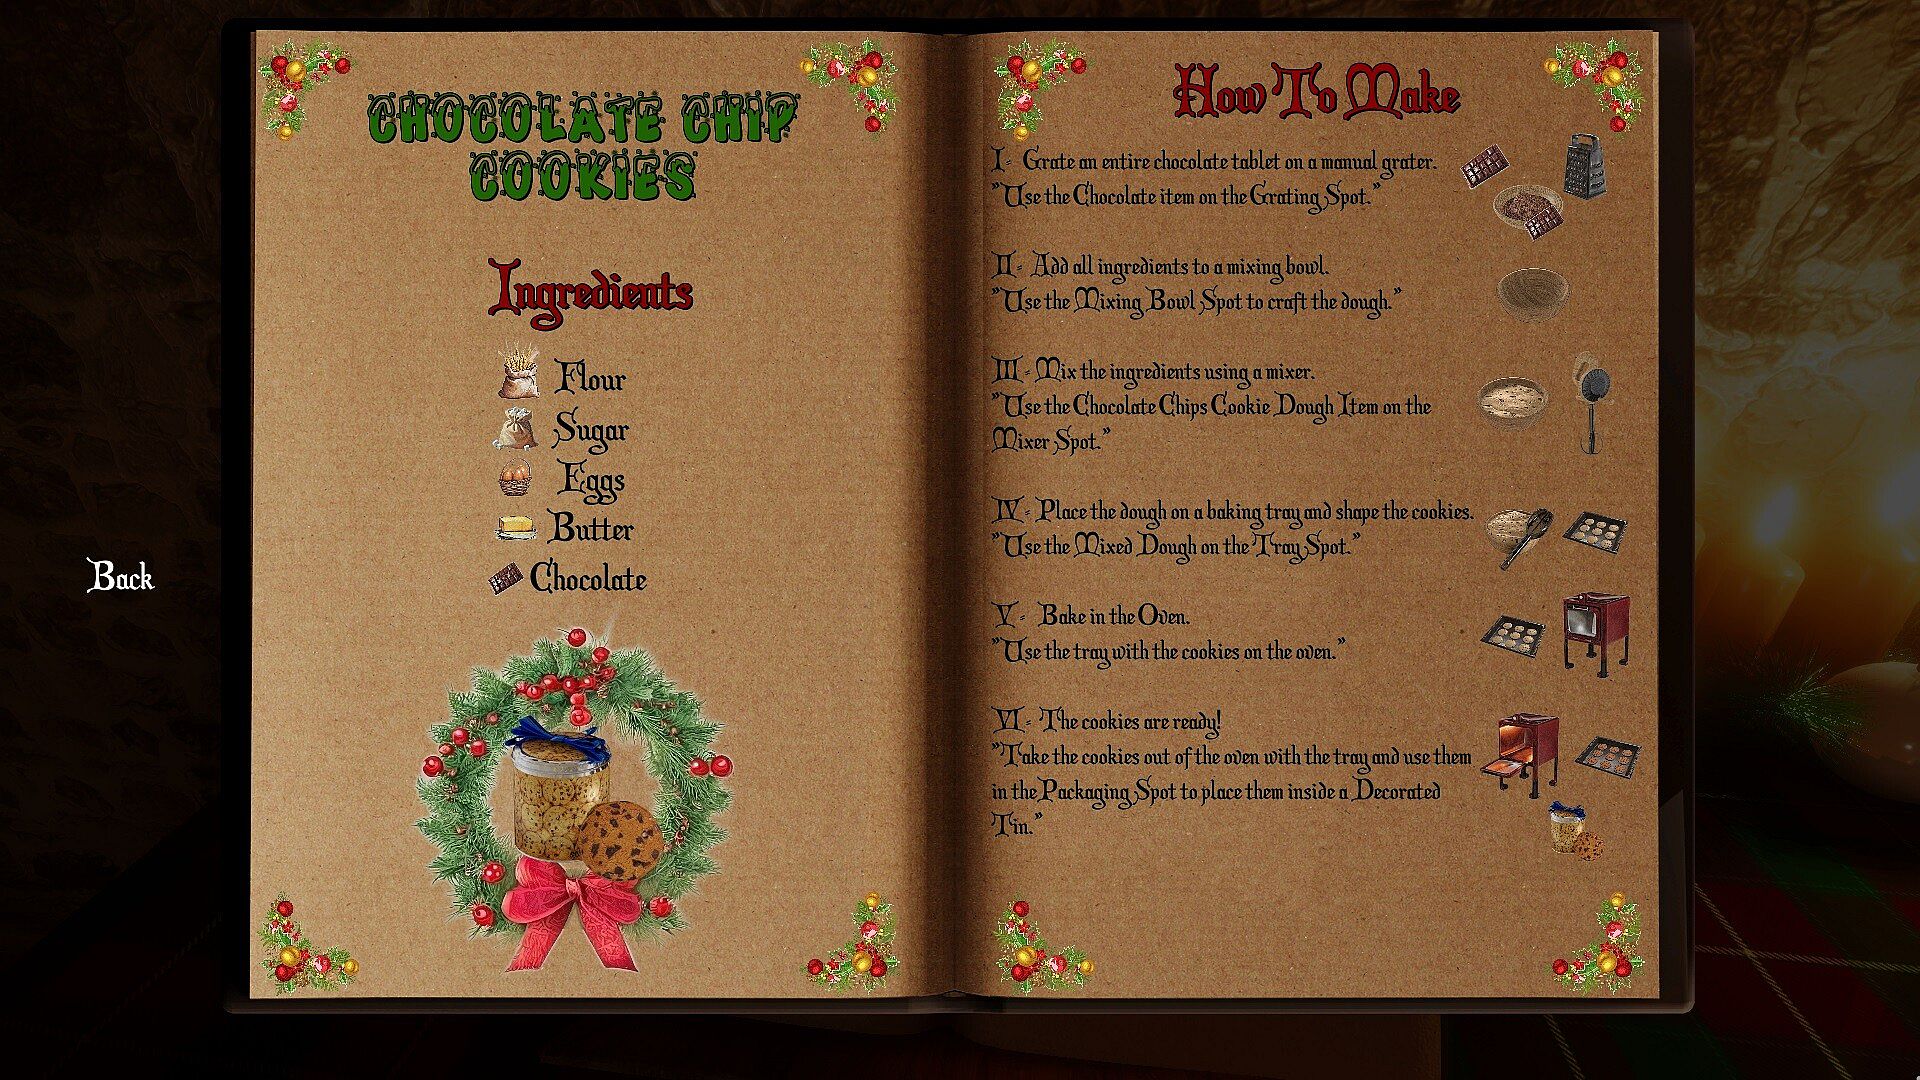 CHOCOLATE CHIP
COOKIES
Ingredients
Flour
Sugar
Eggs
Butter
Chocolate
Back
How To Make
I- Grate an entire chocolate tablet on a manual grater.
"Use the Chocolate item on the Grating Spot."
II- Add all ingredients to a mixing bowl.
"Use the Mixing Bowl Spot to craft the dough."
III- Mix the ingredients using a mixer.
"Use the Chocolate Chips Cookie Dough Item on the
Mixer Spot."
IV- Place the dough on a baking tray and shape the cookies.
"Use the Mixed Dough on the Tray Spot."
V- Bake in the Oven.
"Use the tray with the cookies on the oven."
VI- The cookies are ready!
"Take the cookies out of the oven with the tray and use them
in the Packaging Spot to place them inside a Decorated
Tin."